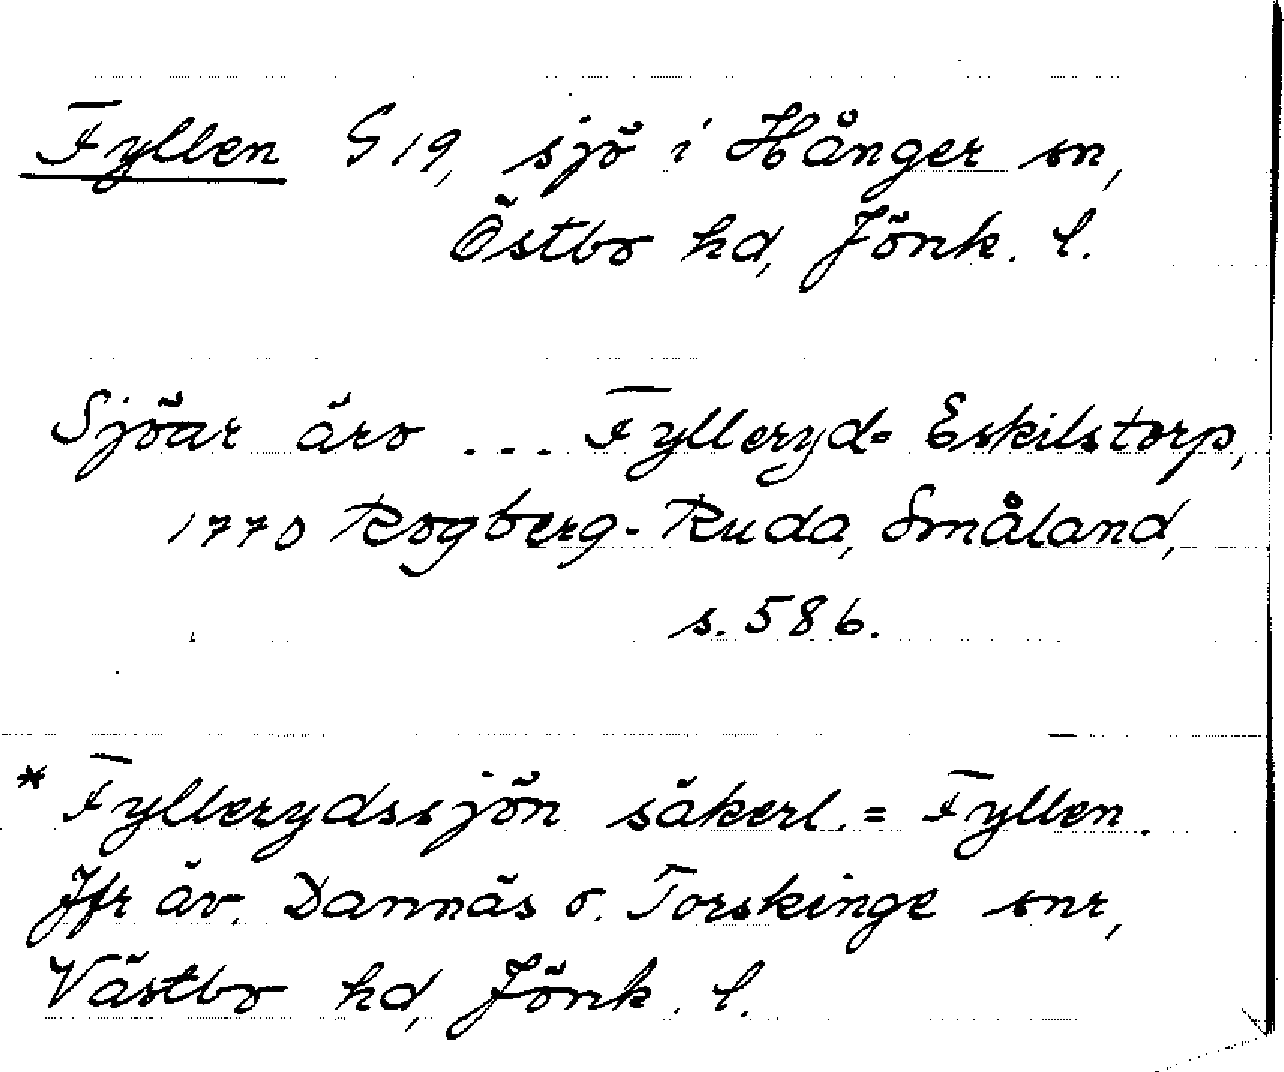 Fyllen G19, sjö i Hånger sn,
Östbo hd, Jönk. l.
Sjöar äro ... Fylleryd= Eskilstorp,
1770 Rogberg-Ruda, Småland,
s. 586.
* Fyllerydssjön säkerl. = Fyllen.
Jfr äv. Dannäs o. Torskinge snr,
Västbo hd, Jönk. l.